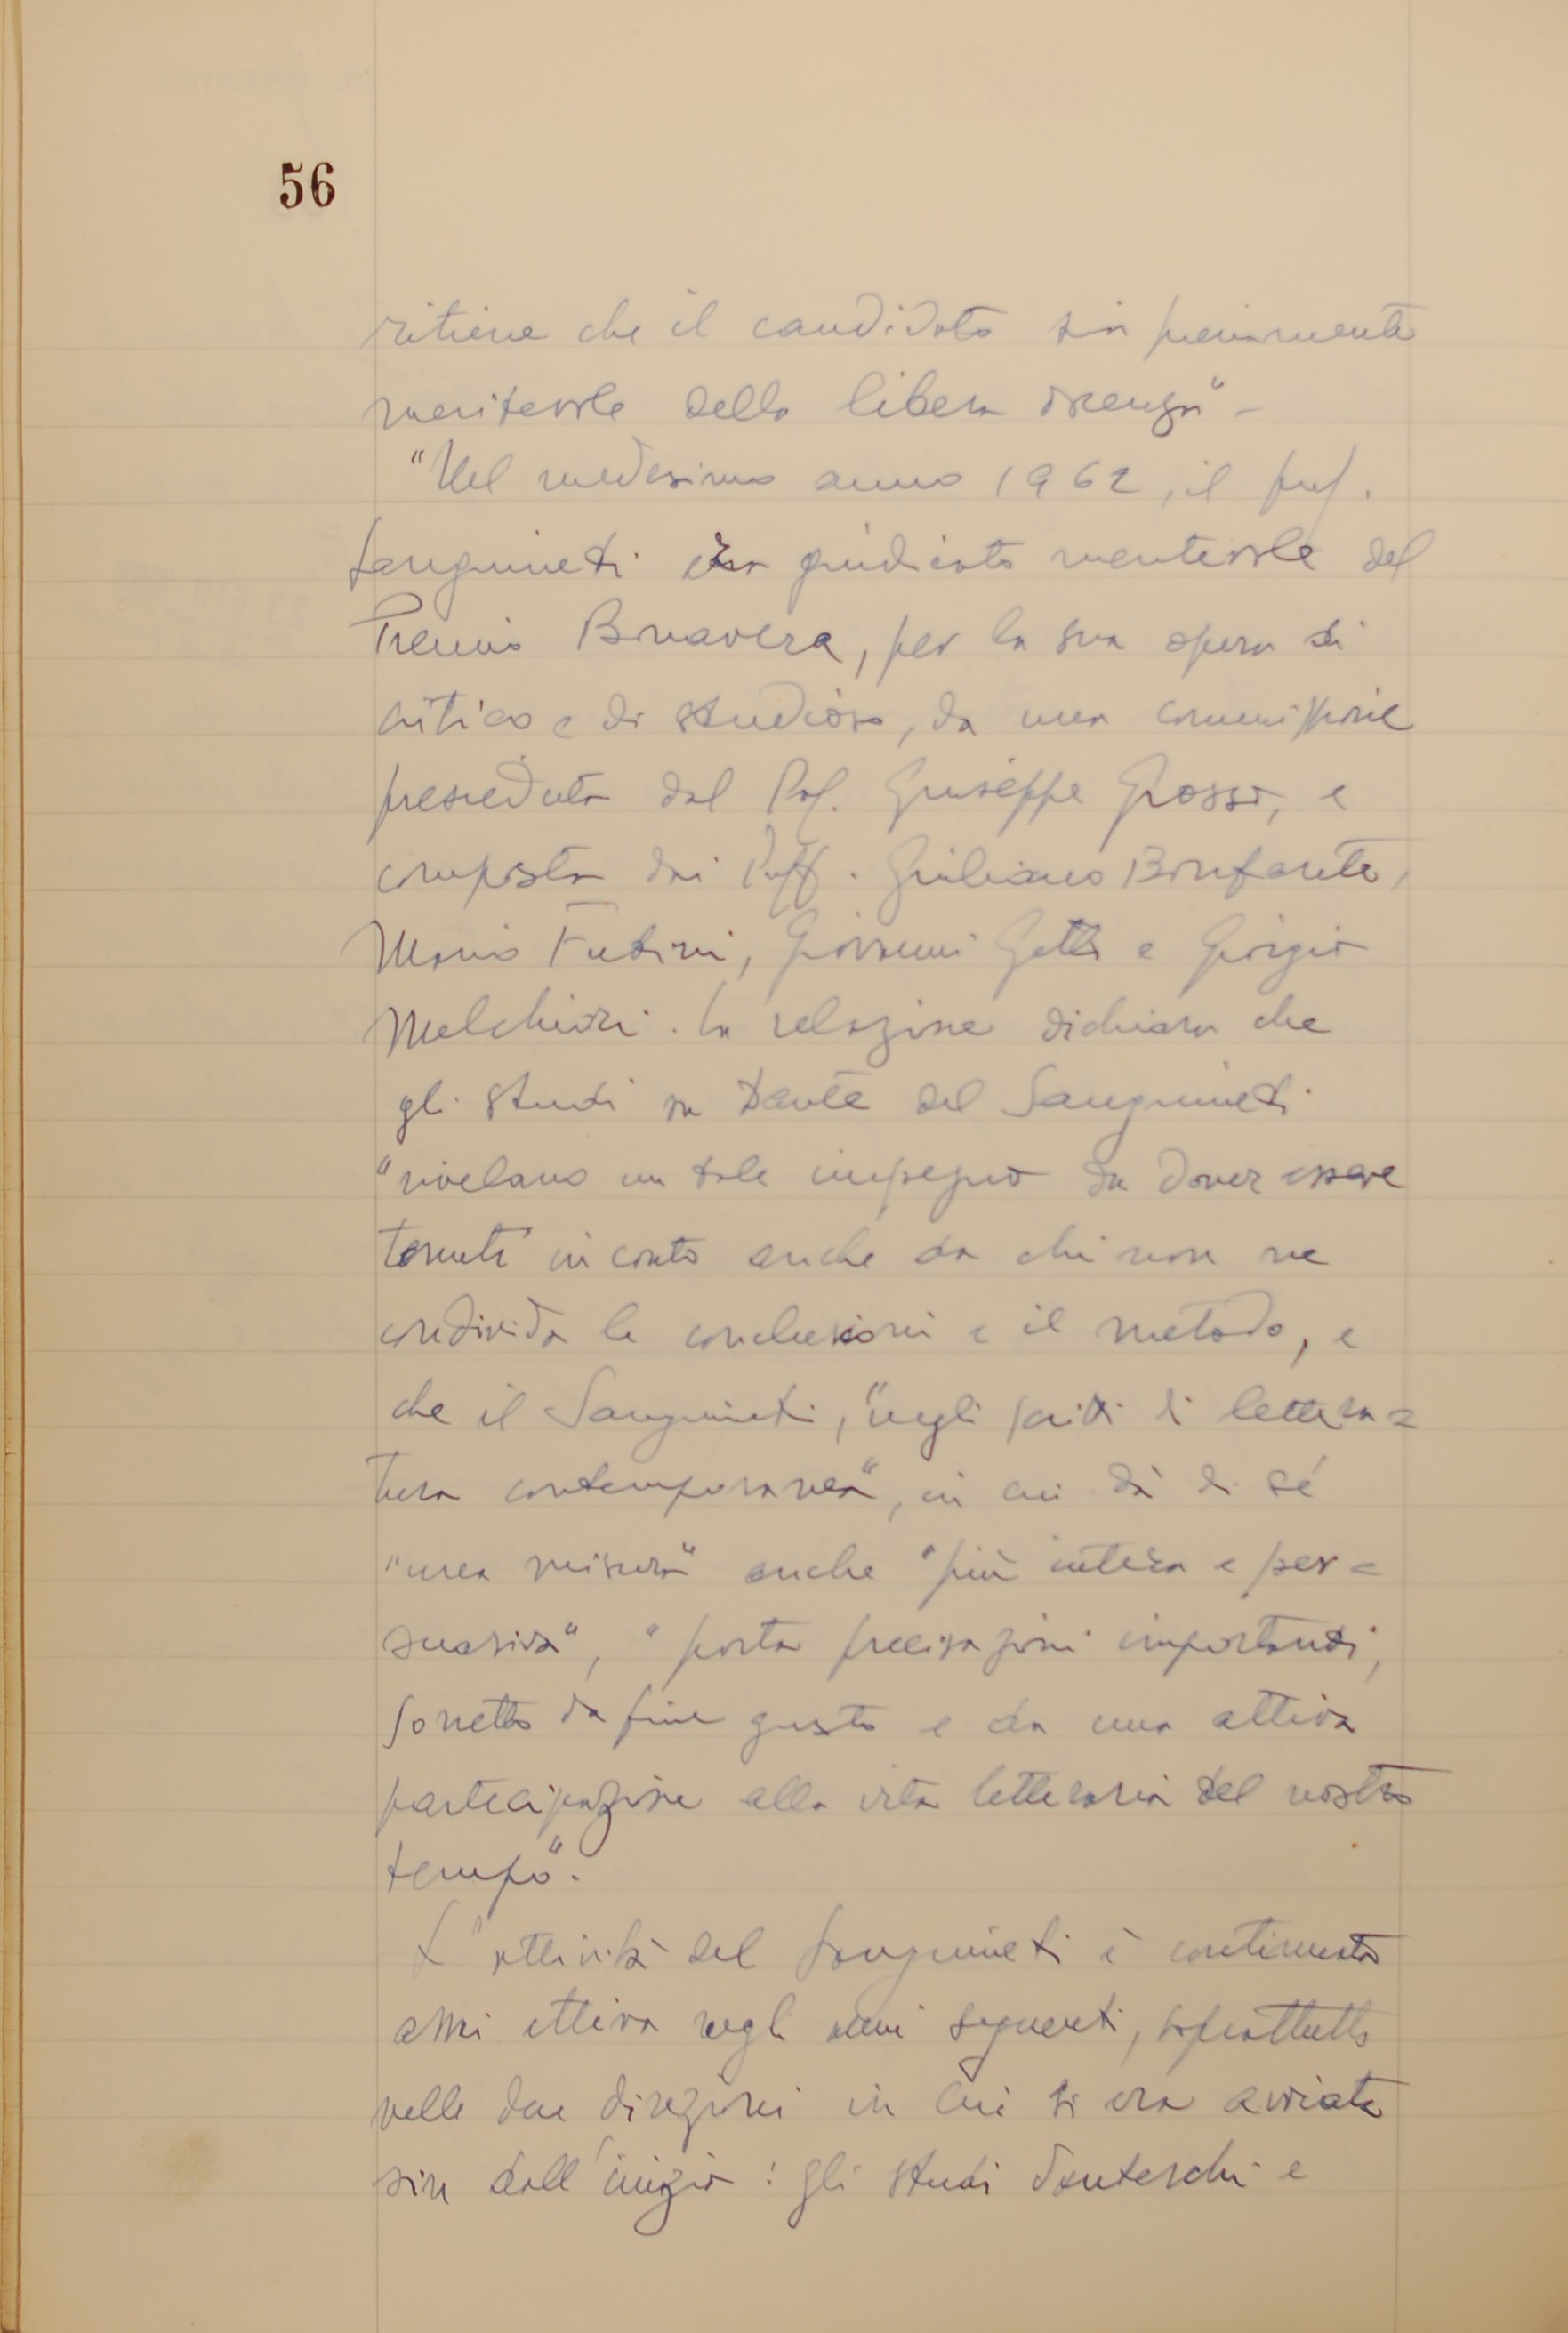 56
ritiene che il candidato sia pienamente
meritevole della libera docenza" -
"Nel medesimo anno 1962, il prof.
Sanguineti era giudicato meritevole del
Premio Bonavera, per la sua opera di
critico e di studioso, da una commissione
presieduta dal Prof. Giuseppe Grosso, e
composta dai Proff. Giuliano Bonfante,
Mario Fubini, Giovanni Getto e Giorgio
Melchiori. La relazione dichiara che
gli studi su Dante del Sanguineti
"rivelano un tale impegno da dover essere
tenuti in conto anche da chi non ne
condivida le conclusioni e il metodo, e
che il Sanguineti, "negli scritti di lettera=
tura contemporanea", in cui dà di sé
"una misura" anche "più intera e per=
suasiva", "porta precisazioni importanti,
sorretto da fine gusto e da una attiva
partecipazione alla vita letteraria del nostro
tempo".
L'attività del Sanguineti è continuata
assai attiva negli anni seguenti, soprattutto
nelle due direzioni in cui si era avviata
sin dall'inizio: gli studi danteschi e